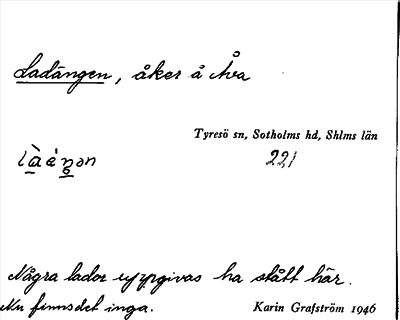 Ladängen, åker å Åva
Tyresö sn, Sotholms hd, Shlms län
221
Några lador uppgivas ha stått här.
Nu finns det inga.
Karin Grafström 1946